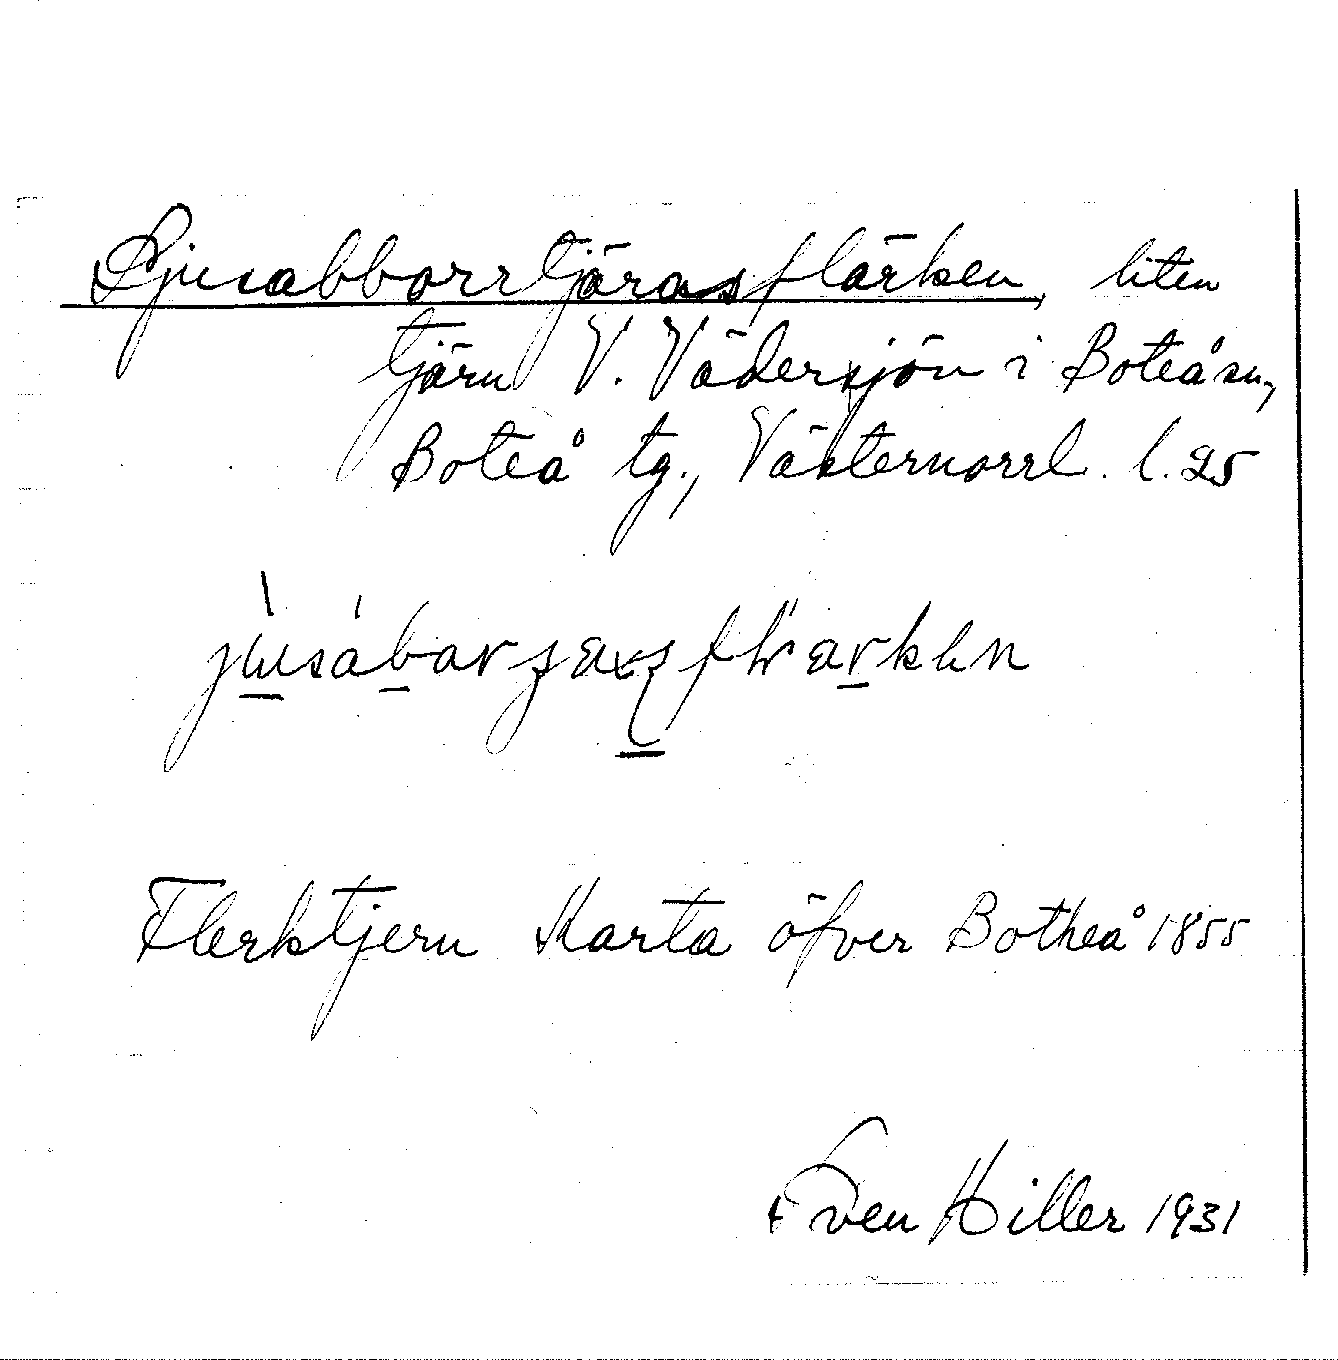 Ljusabborrtjärnsflärken, liten
tjärn V. Vädersjön i Boteå sn,
Boteå tg., Västernorrl. l. 25
Flerktjern Karta öfver Botheå 1855
Sven Hiller 1931